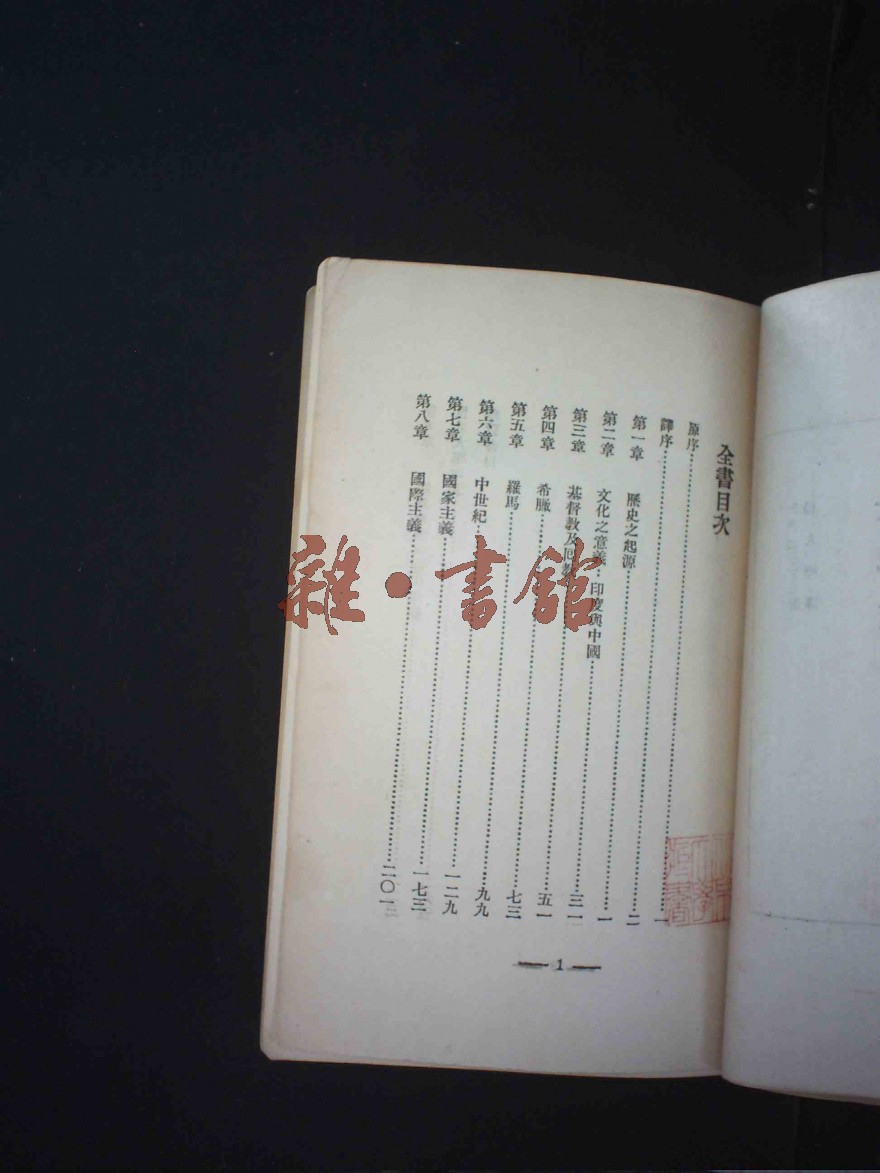 全書目次
原序……一
譯序……二
第一章 歷史之起源……一
第二章 文化之意義·印度與中國……三一
第三章 基督教及回教……五一
第四章 希臘……七三
第五章 羅馬……九九
第六章 中世紀……一二九
第七章 國家主義……一七三
第八章 國際主義……二〇一
— 1 —
雜·書館